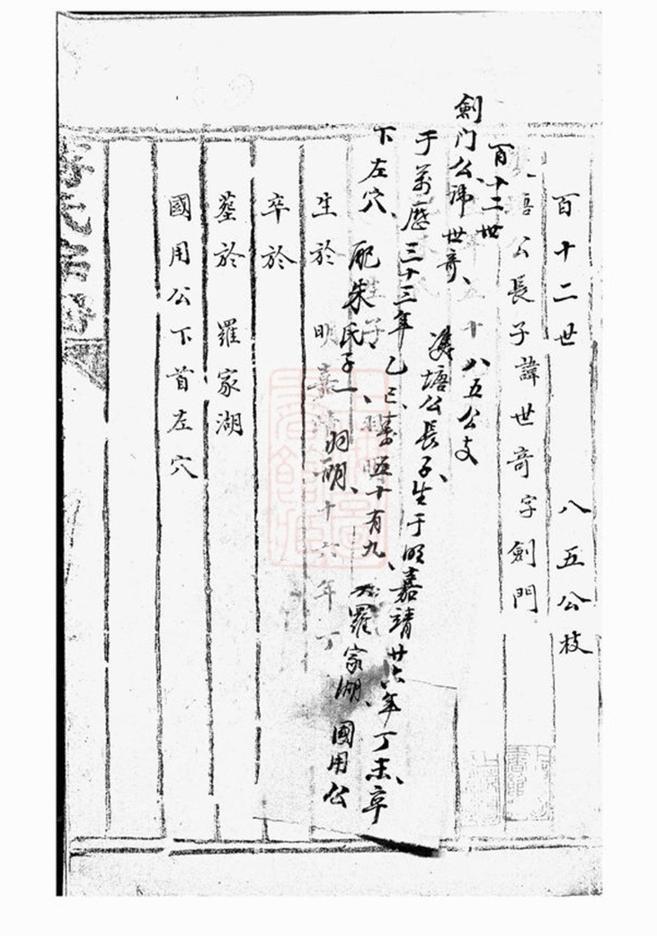 百十二世 八五公枝
公長子諱世奇字劍門
百十二世 八五公支
劍门公諱世奇、 塘公長子、生于明嘉靖廿六年丁未、卒
于萬歷三十三年乙巳、壽五十有九、 羅家湖、國用公
下左穴、配朱氏子一、羽明、
生於 明嘉 十六年丁
卒於
塟於 羅家湖
國用公下首左穴